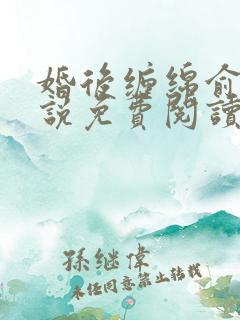 婚後缠绵俞
說免費閱讀
孫继偉
未经同意禁止转载